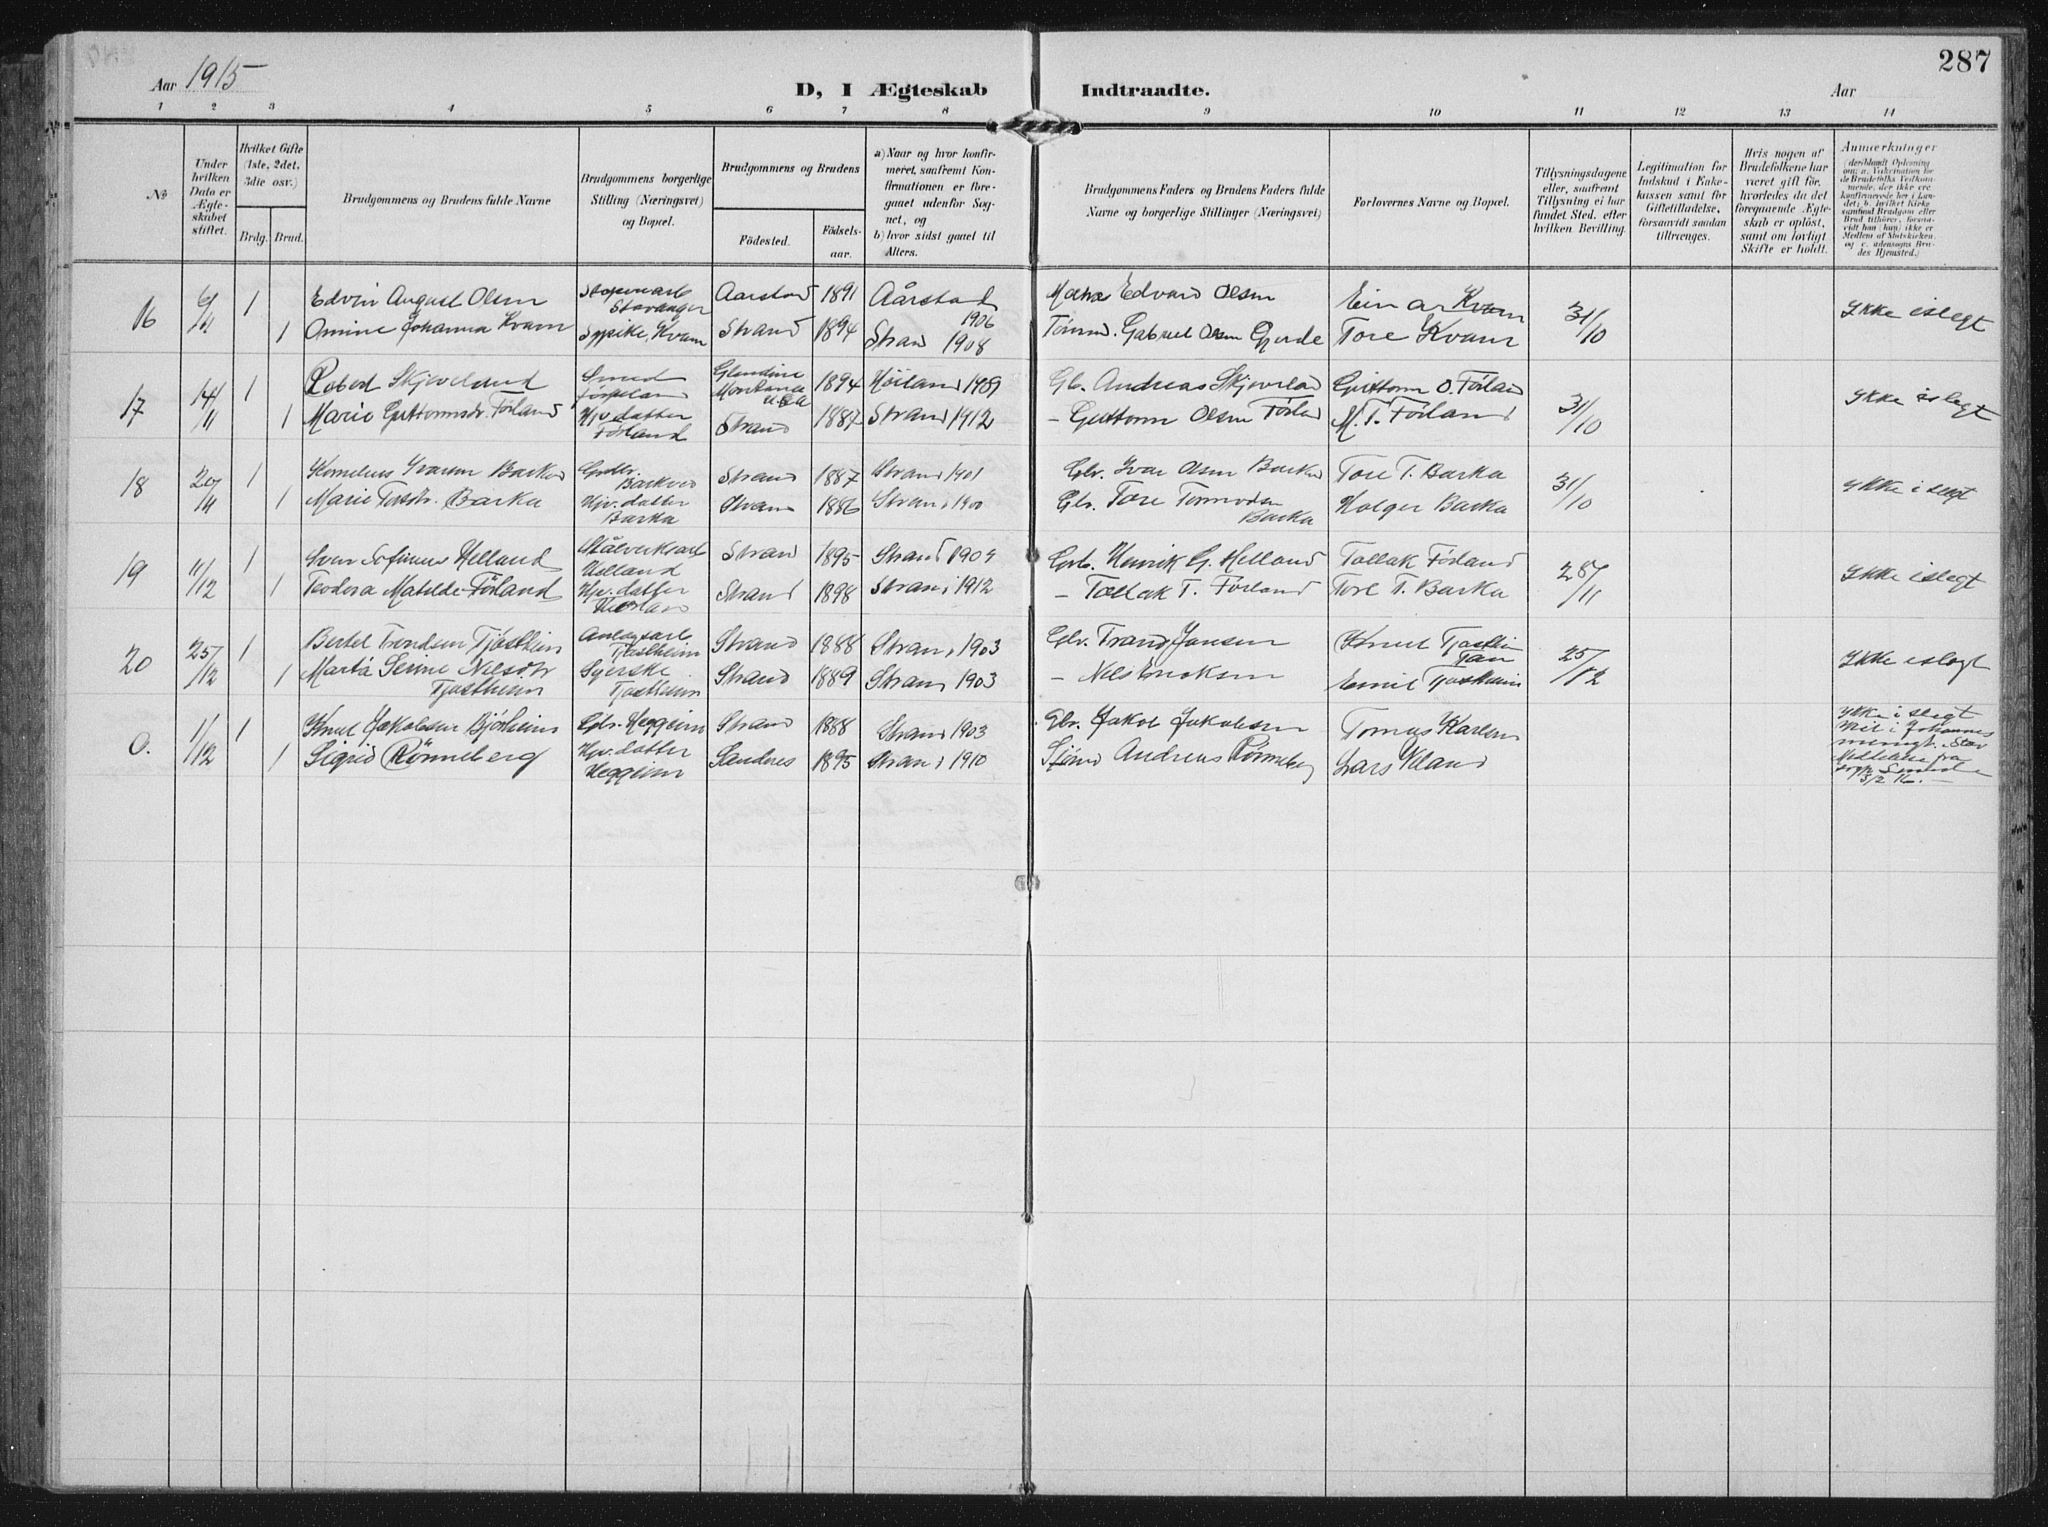 287
Aar 1915
D, I Ægteskab Indtraadte.
Aar
1 2 3 4 5 6 7 8 9 10 11 12 13 14
No
Under hvilken Dato er Ægteskabet stiftet.
Hvilket Gifte (1ste, 2det, 3die osv.)
Brdg. Brud.
Brudgommens og Brudens fulde Navne
Brudgommens borgerlige Stilling (Næringsvei) og Bopæl.
Brudgommens og Brudens
Fødested.
Fødselsaar.
a) Naar og hvor konfirmeret, saafremt Konfirmationen er foregaaet udenfor Sognet, og
b) hvor sidst gaaet til Alters.
Brudgommens Faders og Brudens Faders fulde Navne og borgerlige Stillinger (Næringsvei)
Forlovernes Navne og Bopæl.
Tillysningsdagene eller, saafremt Tillysning ei har fundet Sted, efter hvilken Bevilling.
Legitimation for Indskud i Enkekassen samt for Giftetilladelse, forsaavidt saadan tiltrænges.
Hvis nogen af Brudefolkene har været gift før, hvorledes da det foregaaende Ægteskab er opløst, samt om lovligt Skifte er holdt.
Anmærkninger
16 6/11 1 Edvin August Olsen Stavanger Aarstad 1891 Aårstad 1906 Edvard Olsen Einar Kvam 31/10 Ikke i slegt
1 Amine Johanna Kvam Sypike, Kvam Strand 1894 Strand 1908 Gabriel Olsen Gjerde Tore Kvam
17 14/11 1 Robert Skjeveland Smed Jørpeland Glendine Montana U.S.A 1894 Höiland 1909 Gb. Andreas Skjeveland Guttorm O. Førland 31/10 Ikke i slegt
1 Marie Guttormsdr. Førland Hjv. datter Førland Strand 1887 Strand 1912 – Guttorm Olsen Førland M. T. Førland
18 20/11 1 Kornelius Ivarsen Barkved Barkved Strand 1887 Strand 1901 Gbr. Ivar Olsen Barkved Tore T. Barka 31/10 Ikke i slegt
1 Marie Toresdr. Barka Hjv. datter Barka Strand 1886 Strand 1900 Gbr. Tore Tormodsen Barka Holger Barka
19 11/12 1 Sven Sofinus Helland Stålverksarb Helland Strand 1895 Strand 1909 Gbr. Henrik G. Helland Tallak Førland 28/11 Ikke i slegt
1 Teodora Matilde Førland Hjv. datter Strand 1898 Strand 1912 – Tallak T. Førland Tore T. Barka
20 25/12 1 Bertel Trondsen Tjøstheim Anlegsarb Tjøstheim Strand 1888 Strand 1903 Gbr. Trond Jansen Knut Tjøstheim Tau 25/12 Ikke i slegt
1 Marta Serine Nilsdtr Tjøstheim Syerske Tjøstheim Strand 1889 Strand 1903 – Emil Tjøstheim
0. 1/12 1 Knut Jakobsen Bjørheim Gbr. Heggeim Strand 1888 Strand 1903 Gbr. Jakob Jakobsen Tomas Karlsen Ikke i slegt
1 Sigrid Rönneberg Hjv. datter Heggeim Sandnes 1895 Strand 1910 Andreas Rönneberg Lars Meland Viet i Johannes menigh. i Stav Meddelelse fra 3/2 16.